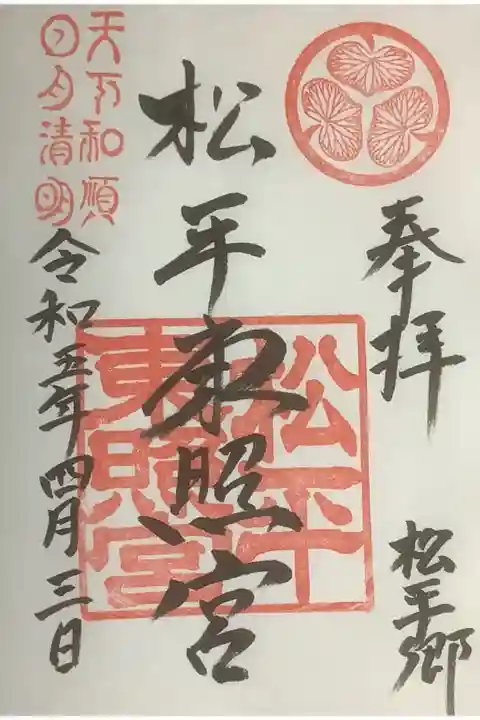 奉拝
松平郷
松平東照宮
松平
東照宮
天下和順
日月清明
令和五年四月三日